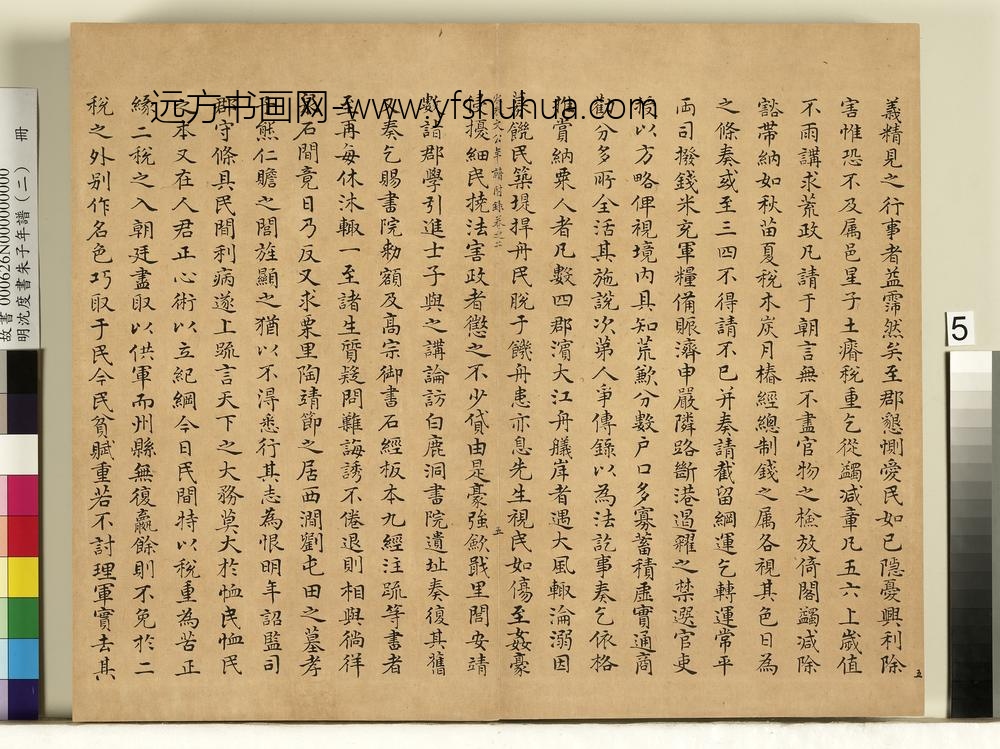 義精見之行事者益霈然矣至郡懇惻愛民如己隱憂興利除
害惟恐不及属邑星子土瘠稅重乞從蠲减章凡五六上歲值
不雨講求荒政凡請于朝言無不盡官物之檢放倚閣蠲减除
豁帶納如秋苗夏稅木炭月樁經總制錢之属各視其色日為
之條奏或至三四不得請不已并奏請截留綱運乞轉運常平
兩司撥錢米充軍糧備賑濟申嚴隣路斷港遏糴之禁選官吏
授以方略俾視境内具知荒歉分數户口多寡蓄積虛實通商
勸分多所全活其施設次第人爭傳錄以為法訖事奏乞依格
推賞納粟人者凡數四郡濱大江舟艤岸者遇大風輒淪溺因
募饑民築堤捍舟民脫于饑舟患亦息先生視民如傷至姦豪
文公年譜附錄卷之二
五
侵擾細民撓法害政者懲之不少貸由是豪强斂戢里閭安靖
數詣郡學引進士子與之講論訪白鹿洞書院遺址奏復其舊
又奏乞賜書院勑額及髙宗御書石經板本九經注疏等書者
至再每休沐輒一至諸生質疑問難誨誘不倦退則相與徜徉
泉石間竟日乃反又求栗里陶靖節之居西澗劉屯田之墓孝
子熊仁瞻之閭旌顯之猶以不得悉行其志為恨明年詔監司
郡守條具民間利病遂上疏言天下之大務莫大於恤民恤民
之本又在人君正心術以立紀綱今日民間特以稅重為苦正
緣二稅之入朝廷盡取以供軍而州縣無復贏餘則不免於二
稅之外别作名色巧取于民今民貧賦重若不討理軍實去其
五
远方书画网-www.yfshuhua.com
故書 000626N000000000
明沈度書朱子年譜（二） 冊
5